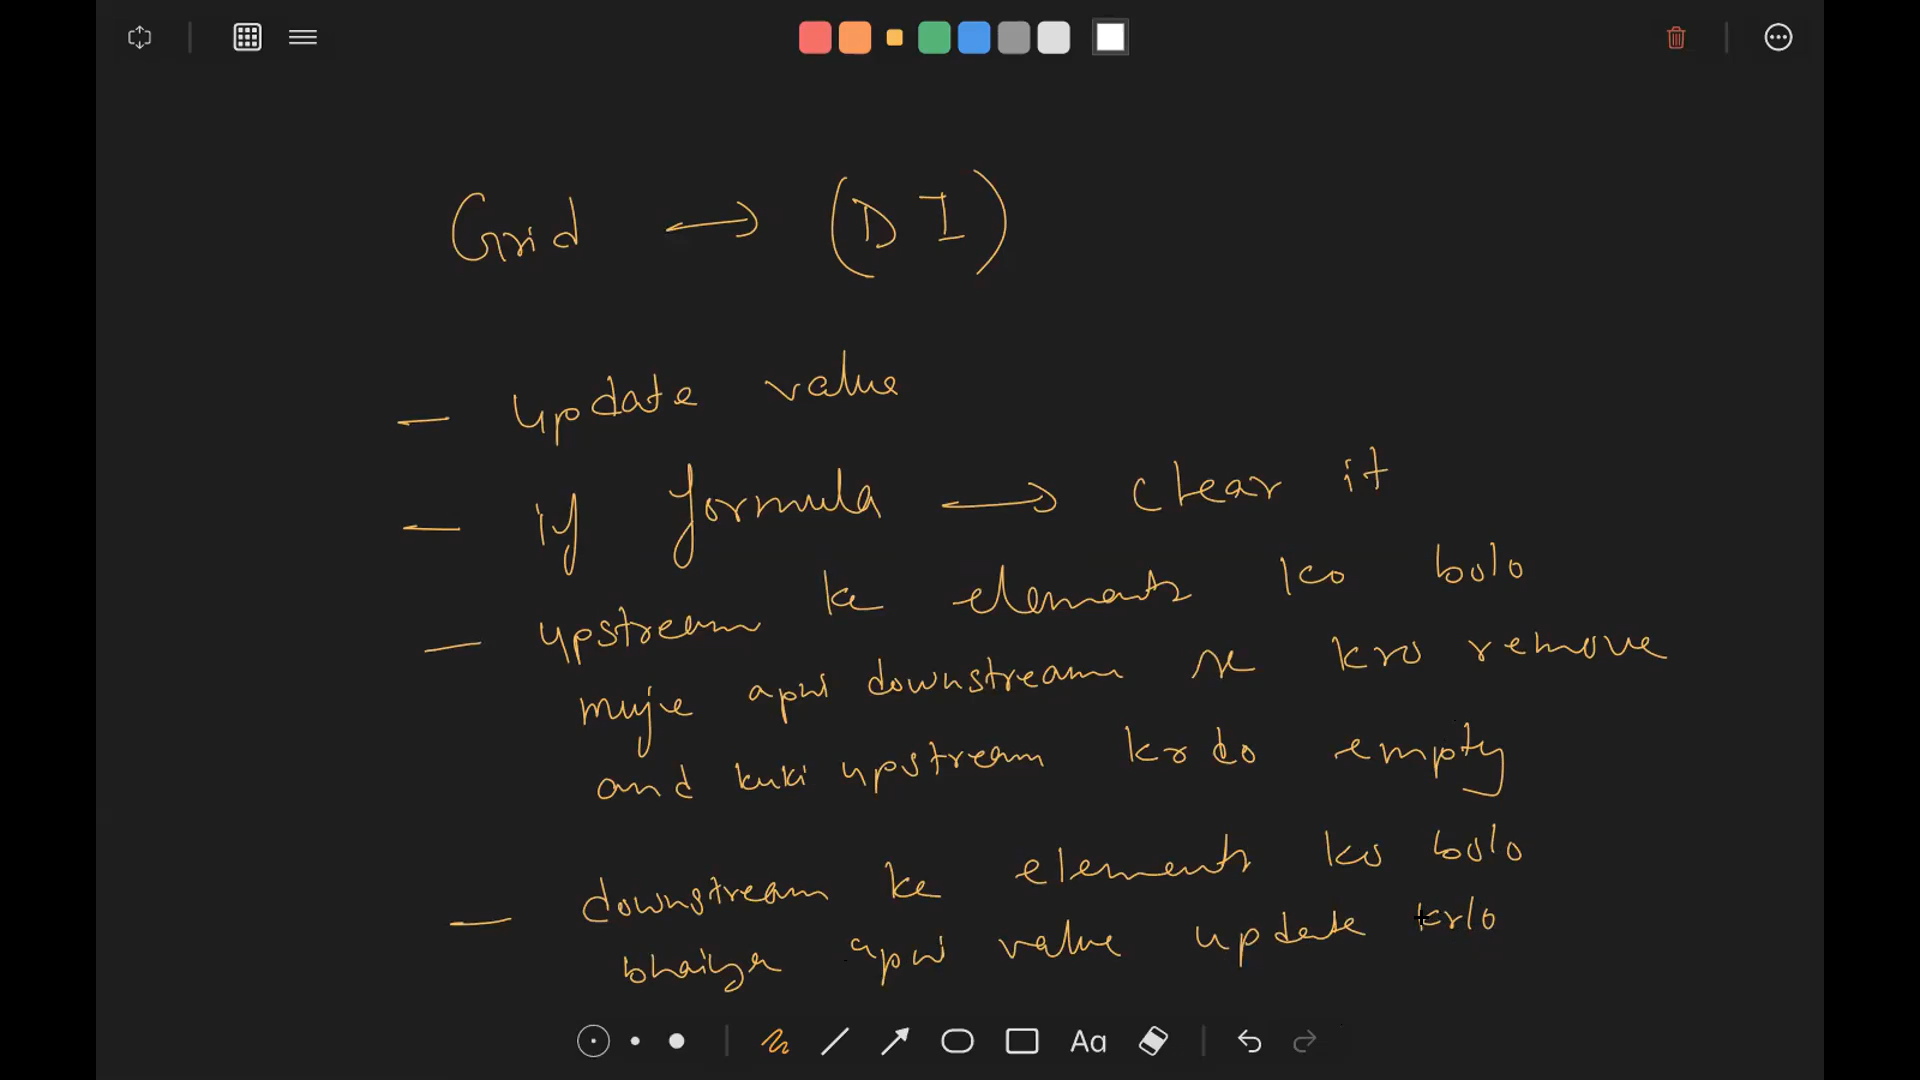 Grid → (DI)
- update value
- if formula → clear it
- upstream ke elements ko bolo
muje apni downstream se kro remove
and kuki upstream krdo empty
- downstream ke elements ko bolo
bhaiya apni value update krlo
Aa